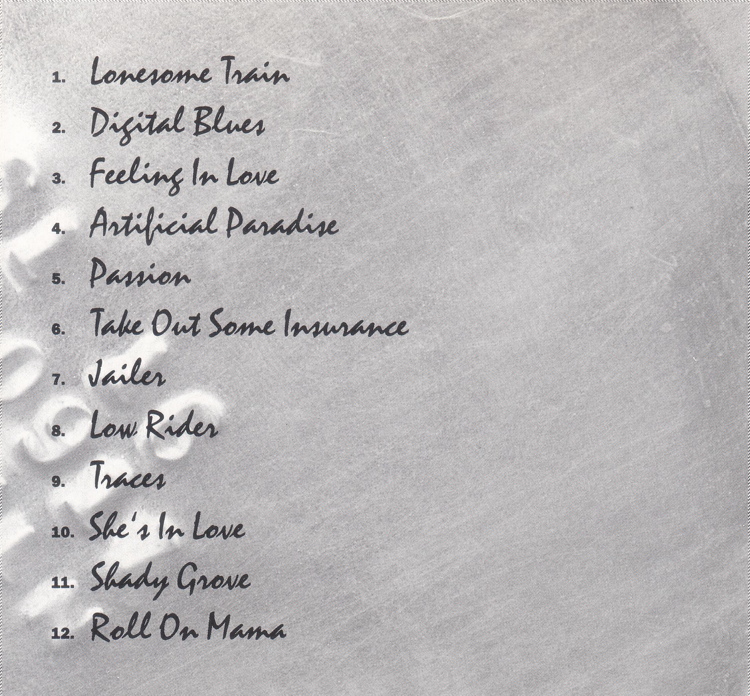 1. Lonesome Train
2. Digital Blues
3. Feeling In Love
4. Artificial Paradise
5. Passion
6. Take Out Some Insurance
7. Jailer
8. Low Rider
9. Traces
10. She's In Love
11. Shady Grove
12. Roll On Mama